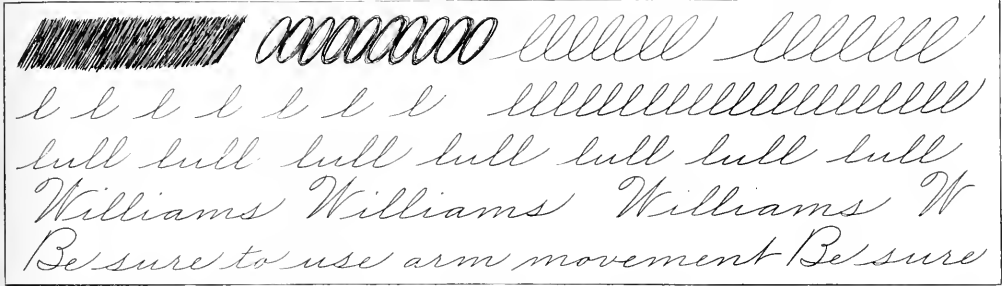 lllllll lllllll
l l l l l l l
lull lull lull lull lull lull lull
Williams Williams Williams W
Be sure to use arm movement Be sure